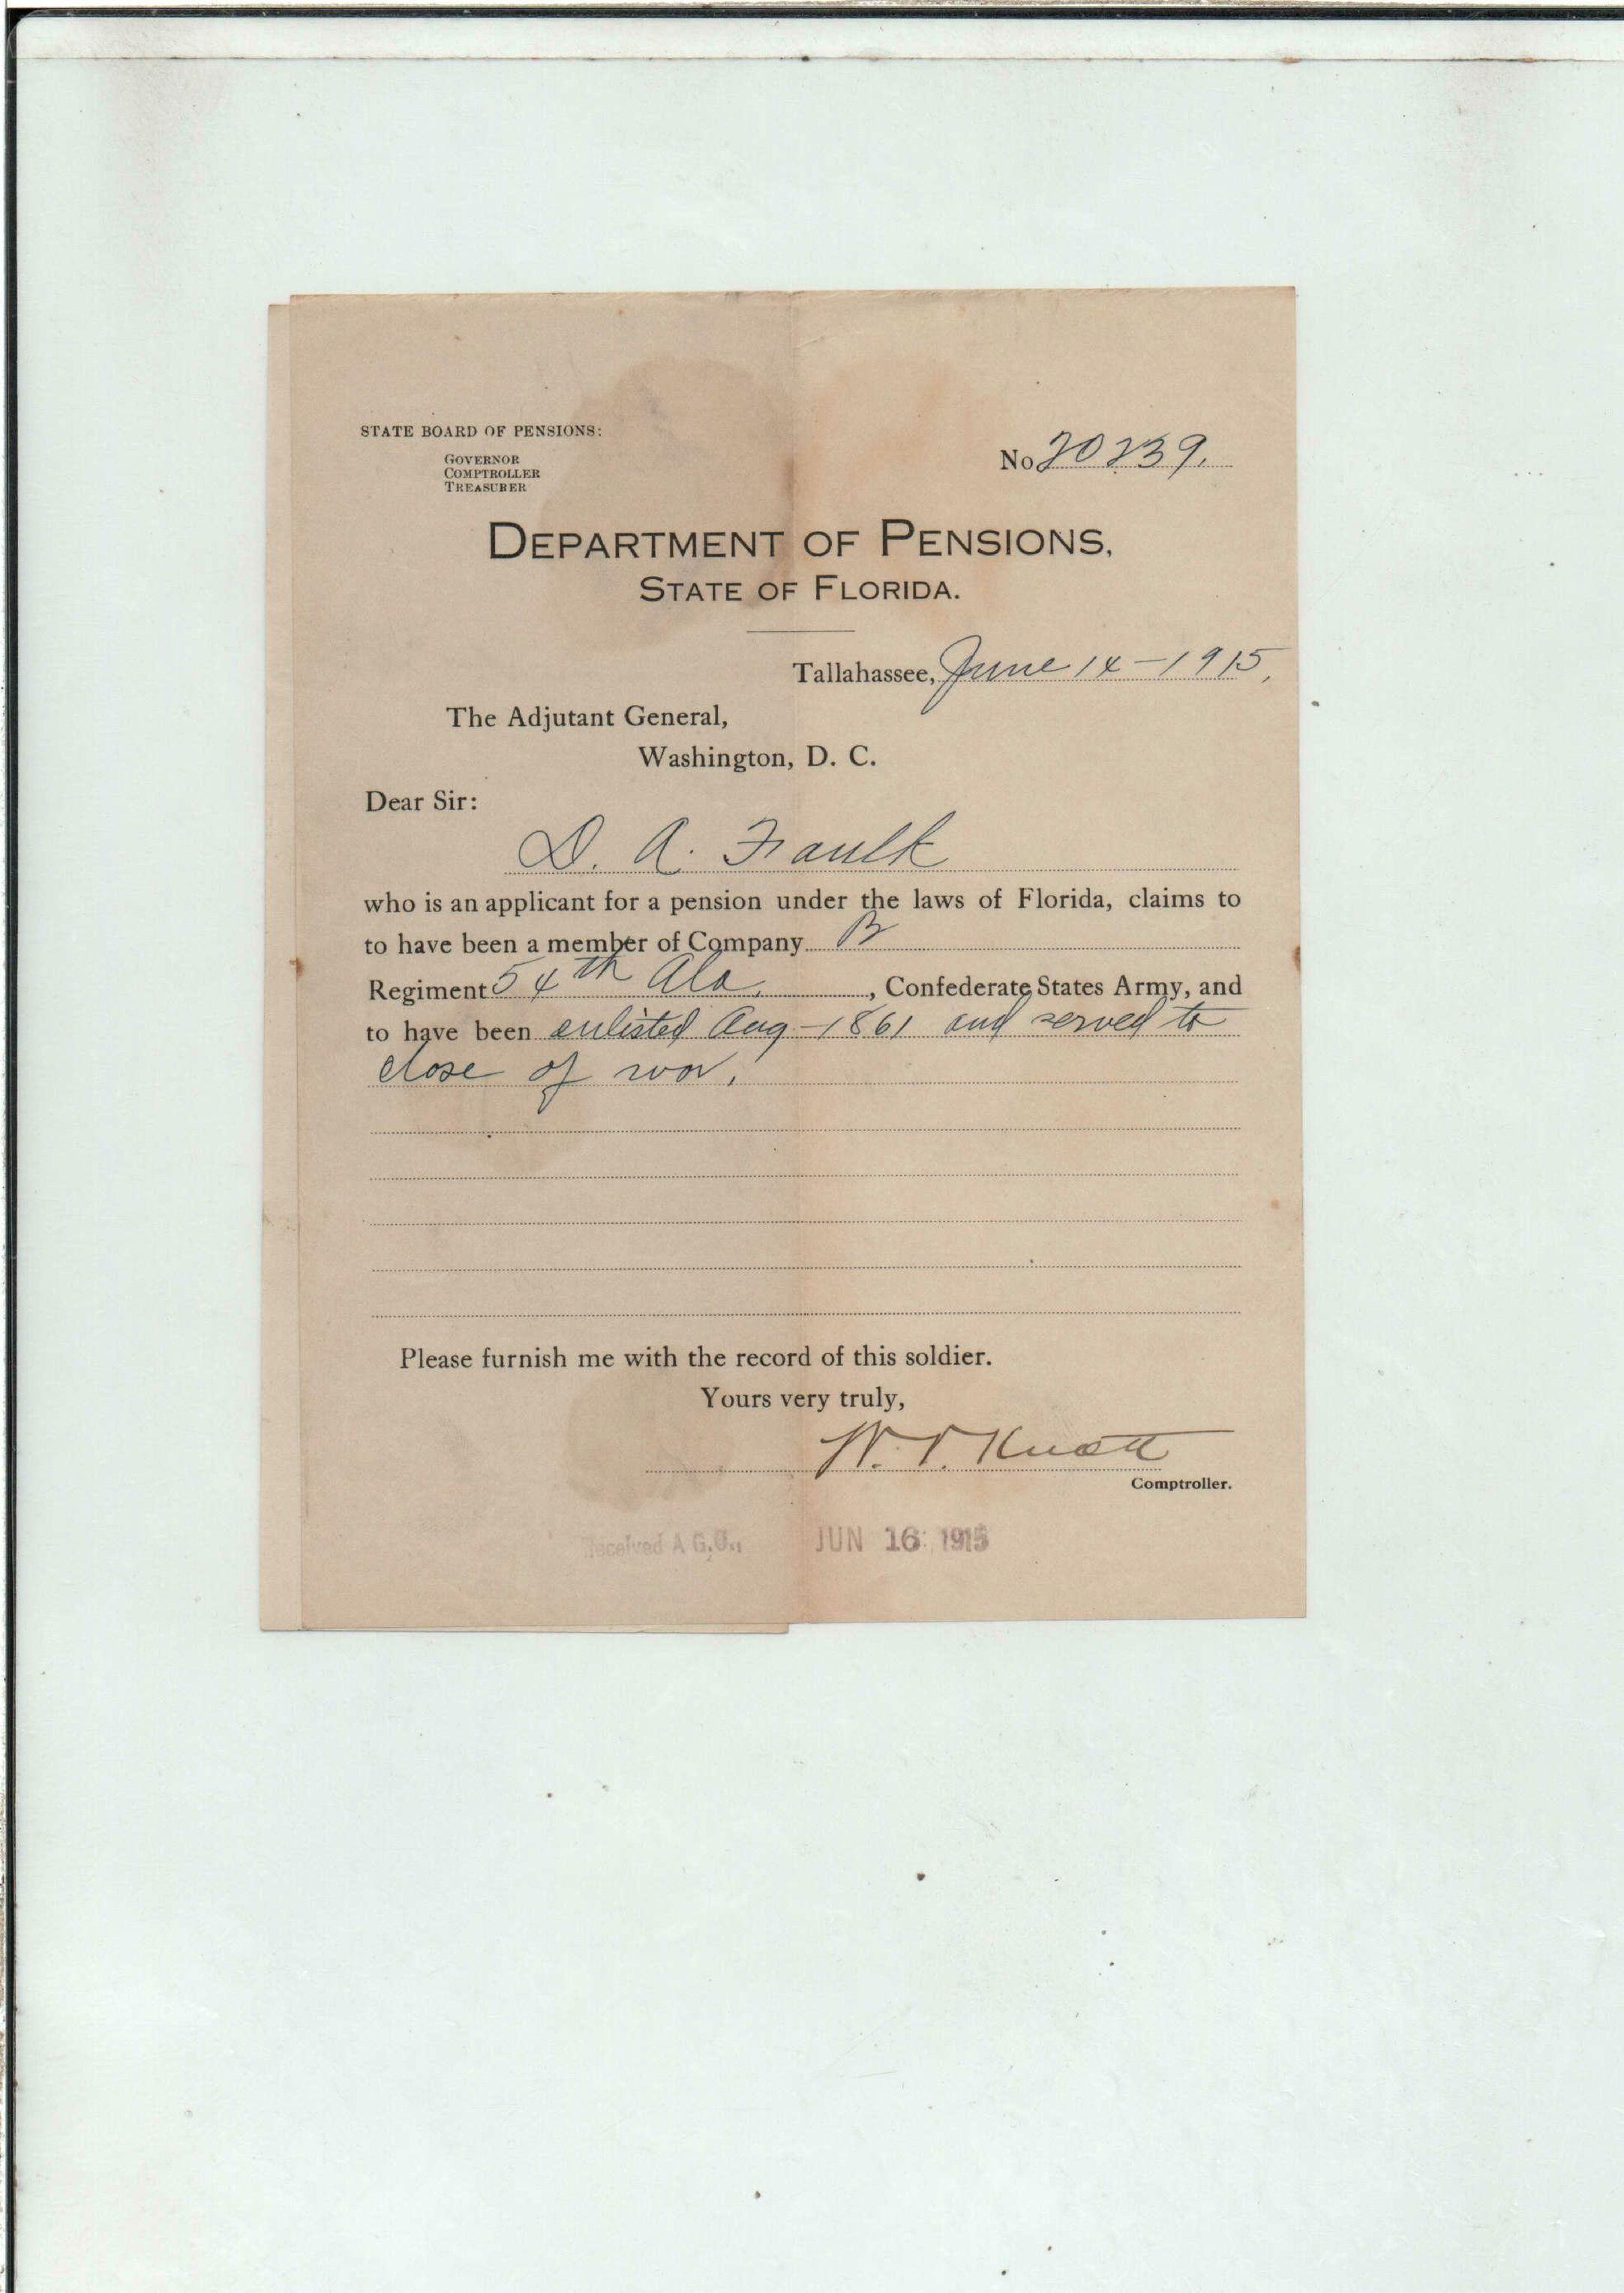 STATE BOARD OF PENSIONS:
GOVERNOR
COMPTROLLER
TREASURER
No 20239.
DEPARTMENT OF PENSIONS,
STATE OF FLORIDA.
Tallahassee, June 14-1915,
The Adjutant General,
Washington, D. C.
Dear Sir:
D. A. Faulk
who is an applicant for a pension under the laws of Florida, claims to
to have been a member of Company B
Regiment 54th Ala. , Confederate States Army, and
to have been enlisted Aug-1861 and served to
close of war.
Please furnish me with the record of this soldier.
Yours very truly,
W. V. Knott
Comptroller.
Received A.G.O., JUN 16 1915